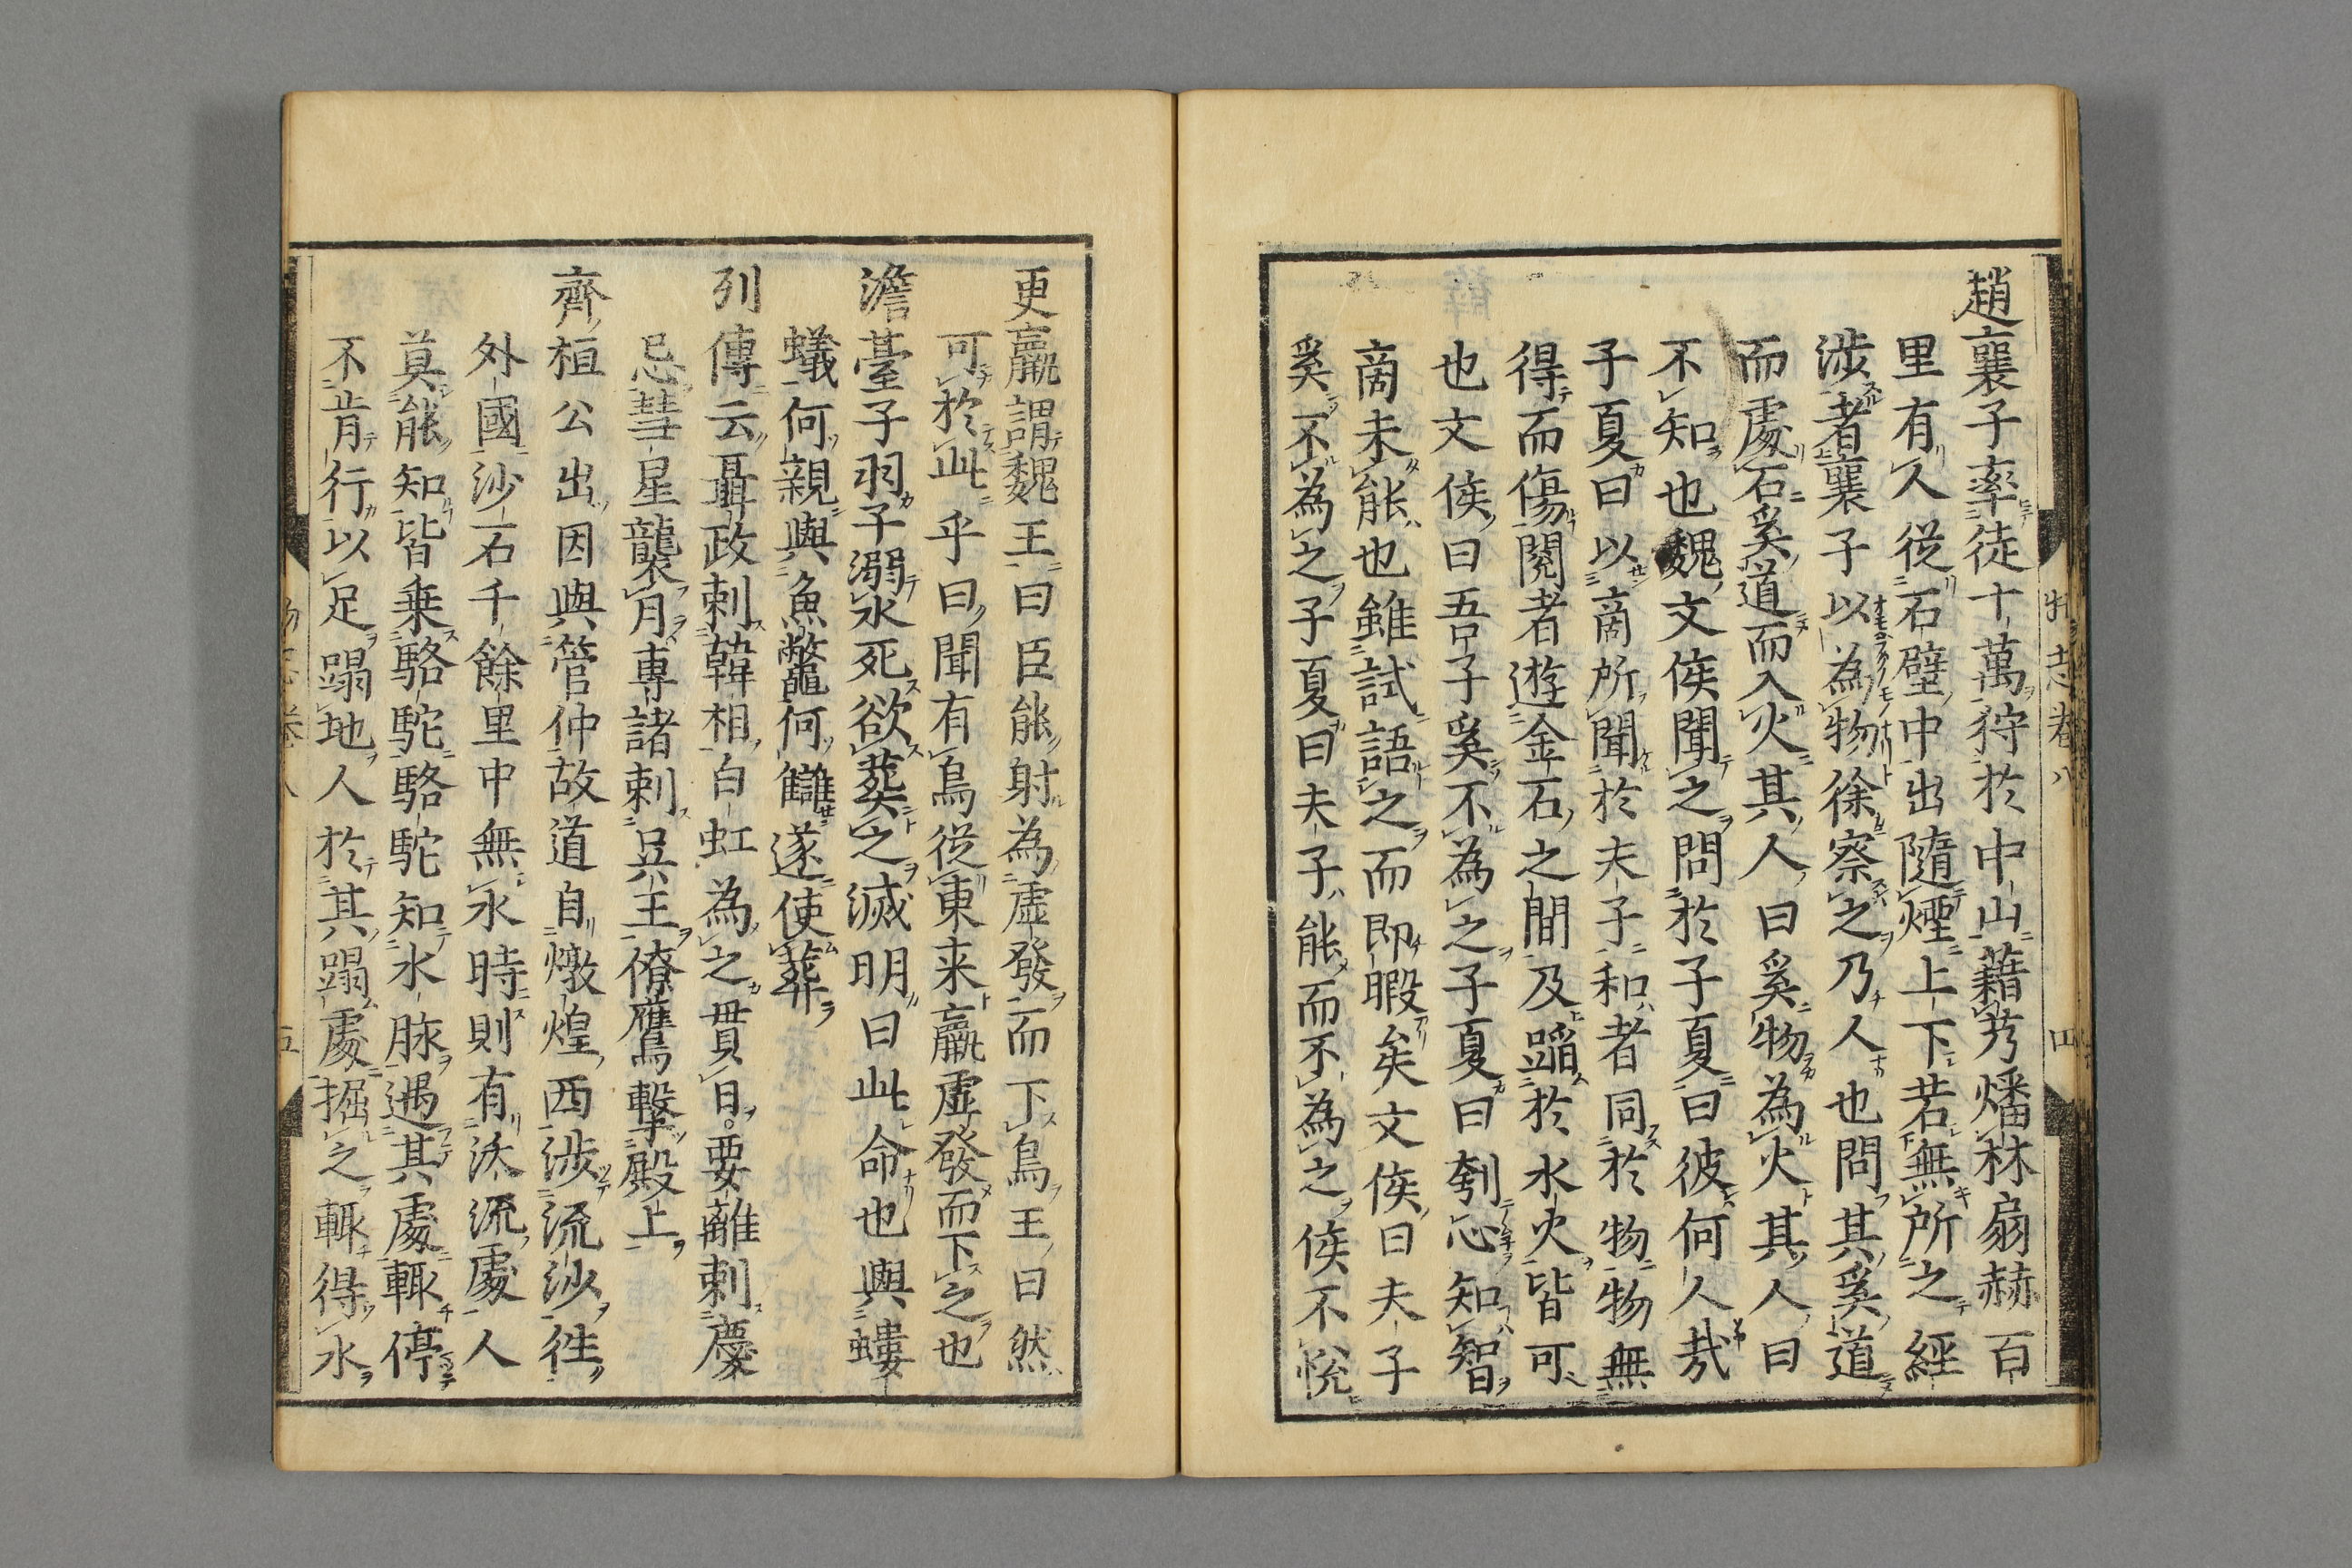 趙襄子率徒十萬狩於中山藉艿燔林扇赫百
里有人従石壁中出隨煙上下若無所之經
渉者襄子以為物徐察之乃人也問其奚道
而處石奚道而入火其人曰奚物為火其人曰
不知也魏文侯聞之問於子夏曰彼何人哉
子夏曰以啇所聞於夫子和者同於物物無
得而傷閲者遊金石之間及蹈於水火皆可
也文侯曰吾子奚不為之子夏曰刳心知智
啇未能也雖試語之而即暇矣文侯曰夫子
奚不為之子夏曰夫子能而不為之侯不悦
更羸謂魏王曰臣能射為虚發而下鳥王曰然
可於此乎曰聞有鳥従東来羸虚發而下之也
澹臺子羽子溺水死欲葬之滅明曰此命也與螻
蟻何親與魚鼈何讎遂使葬
列傳云聶政刺韓相白虹為之貫日。要離刺慶
忌彗星襲月專諸刺呉王僚鷹擊殿上
齊桓公出因與管仲故道自燉煌西渉流沙徃
外國沙石千餘里中無水時則有沃流處人
莫能知皆乗駱駝駱駝知水脉遇其處輒停
不肯行以足蹋地人於其蹋處掘之輒得水